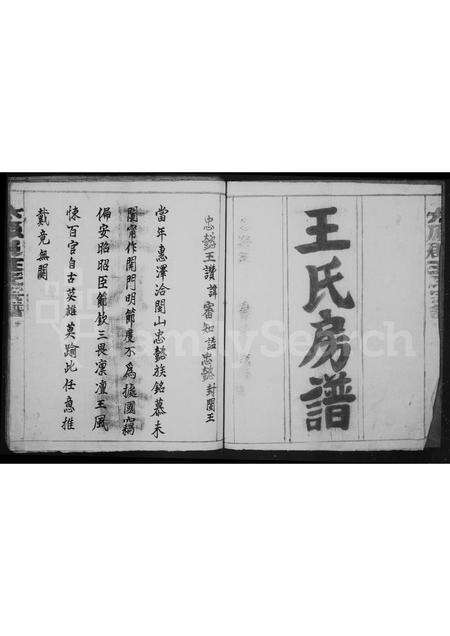 王氏房譜
忠懿王讚諱審知諡忠懿封閩王
當年惠澤洽閩山忠懿族銘慕未
閩甯作開門明節度不為擬國竊
偏安昭昭臣節欽三畏凛凛王風
懐百官自古英雄莫踰此任意推
戴竟無關
FamilySearch